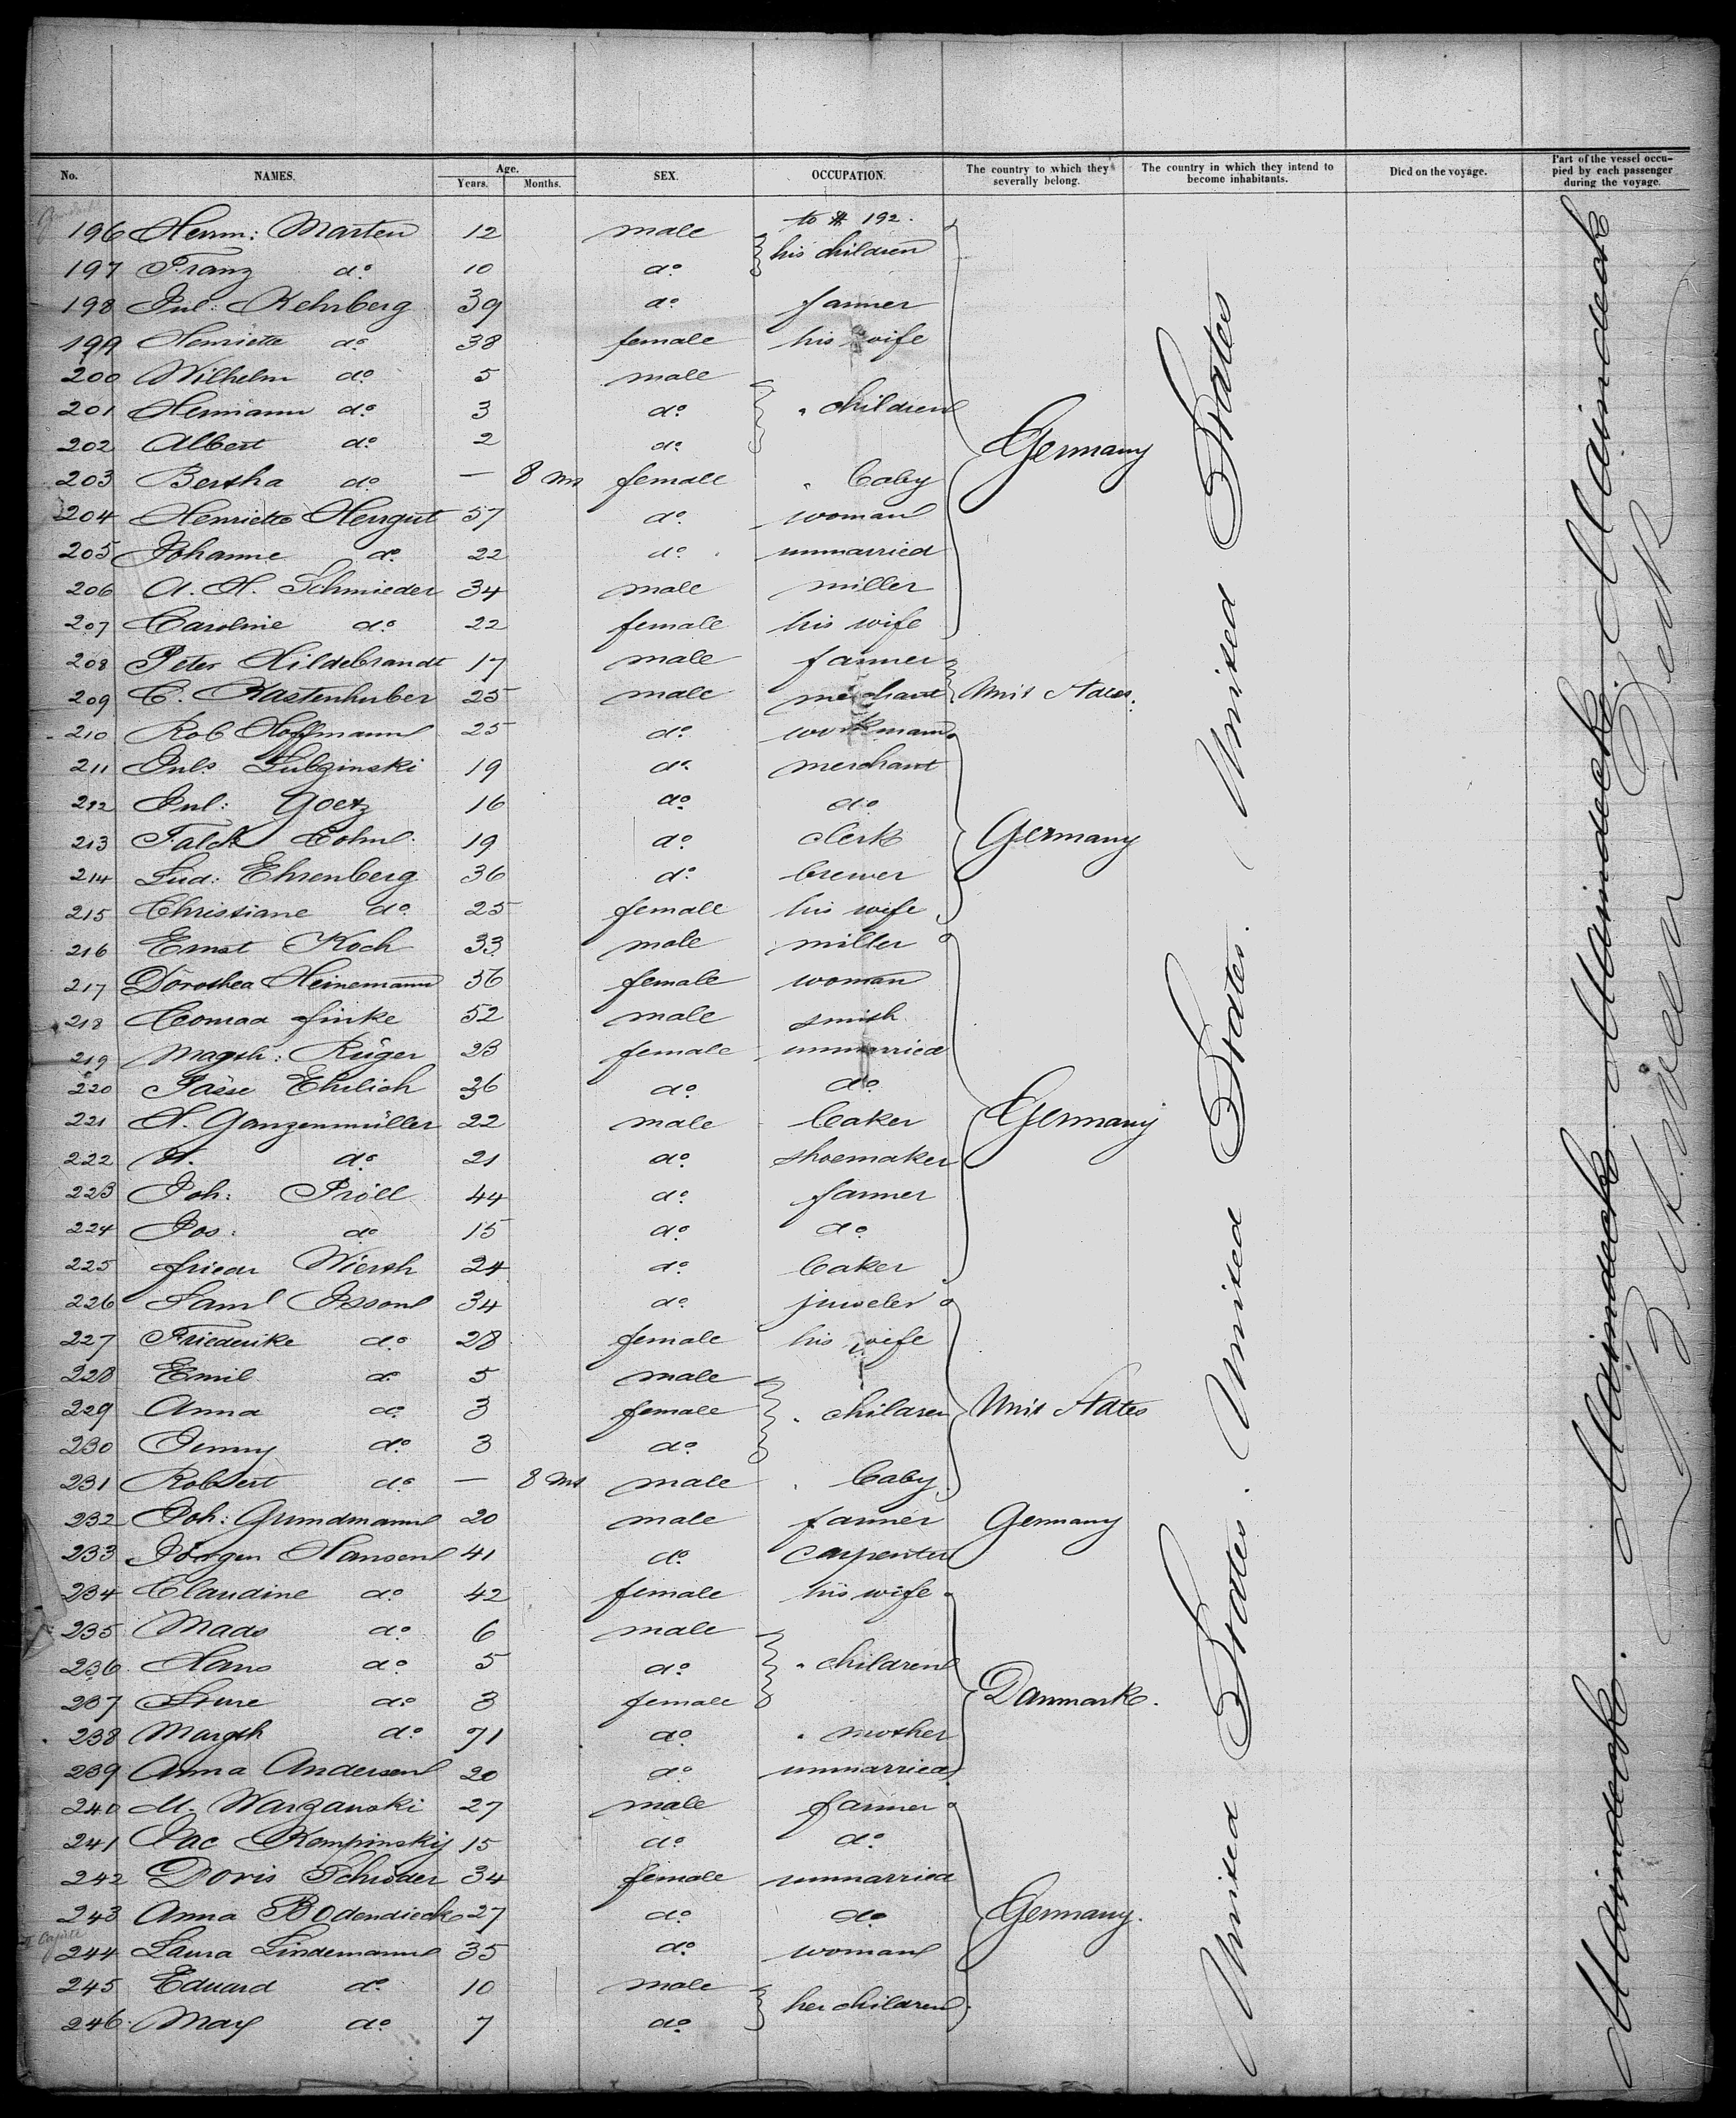 No. NAMES. Age. Years. Months. SEX. OCCUPATION. The country to which they severally belong. The country in which they intend to become inhabitants. Died on the voyage. Part of the vessel occupied by each passenger during the voyage.
196 Herm: Marten 12 male to # 192. his children
197 Franz do 10 do
198 Jul: Kehrberg 39 do farmer
199 Henriette do 38 female his wife
200 Wilhelm do 5 male
201 Hermann do 3 do " children
202 Albert do 2 do Germany
203 Bertha do — 8 ms female " baby
204 Henriette Herrgut 57 do woman
205 Johanne do 22 do unmarried
206 A. H. Schmieder 34 male miller
207 Caroline do 22 female his wife
208 Peter Hildebrandt 17 male farmer
209 C. Kastenhuber 25 male merchant Unit States.
210 Rob Hoffmann 25 do workman
211 Juls Lubzinski 19 do merchant
212 Jul: Goetz 16 do do
213 Falck Cohn 19 do clerk Germany
214 Lud: Ehrenberg 36 do brewer
215 Christiane do 25 female his wife
216 Ernst Koch 33 male miller
217 Dorothea Heinemann 56 female woman
218 Conrad Finke 52 male smith
219 Magth: Rüger 23 female unmarried
220 Ehrlich 36 do do
221 H. Ganzenmüller 22 male baker Germany
222 H. do 21 do shoemaker
223 Joh: Pröll 44 do farmer
224 Jos: do 15 do do
225 Friedr Wierth 24 do baker
226 Saml Isson 34 do juweler
227 Friederike do 28 female his wife
228 Emil do 5 male
229 Anna do 3 female " children Unit States
230 Jenny do 3 do
231 Robert do — 8 ms male " baby
232 Joh: Grundmann 20 male farmer Germany
233 Jörgen Hansen 41 do carpenter
234 Claudine do 42 female his wife
235 Mads do 6 male
236 Hans do 5 do " children
237 do 3 female Danmark.
238 Margth do 71 do " mother
239 Anna Andersen 20 do unmarried
240 M. Warzawski 27 male farmer
241 Jac Kempinskij 15 do do
242 Doris Schröder 34 female unmarried
243 Anna Bodendieck 27 do do Germany.
II Cajüte
244 Laura Lindemann 35 do woman
245 Eduard do 10 male her children
246 Max do 7 do
United States. United States. United States
Maindeck. Maindeck Maindeck Maindeck. Maindeck
Zwischen Deck